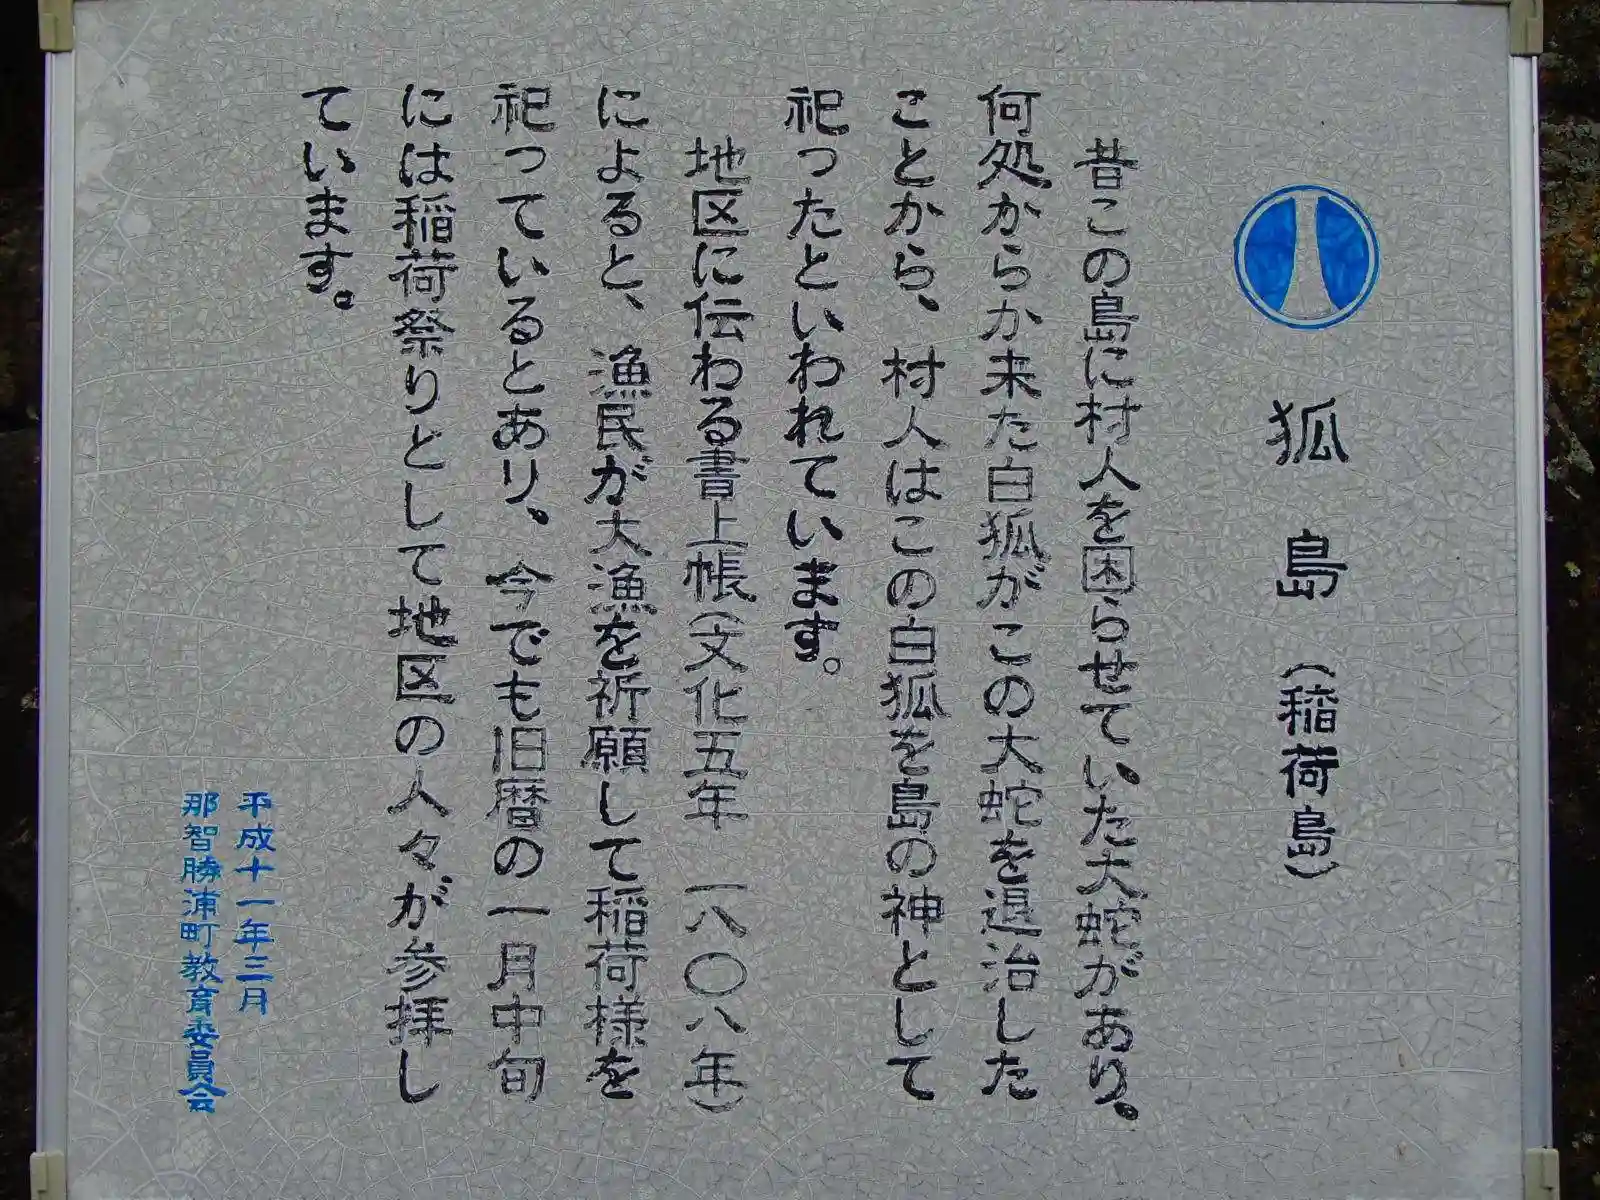 狐島（稲荷島）
昔この島に村人を困らせていた大蛇があり、
何処からか来た白狐がこの大蛇を退治した
ことから、村人はこの白狐を島の神として
祀ったといわれています。
地区に伝わる書上帳（文化五年　一八〇八年）
によると、漁民が大漁を祈願して稲荷様を
祀っているとあり、今でも旧暦の一月中旬
には稲荷祭りとして地区の人々が参拝し
ています。
平成十一年三月
那智勝浦町教育委員会